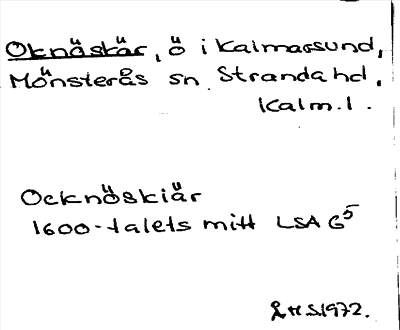 Oknäskär, ö i Kalmarsund,
Mönsterås sn. Stranda hd,
Kalm. l.
Ocknöskiär
1600-talets mitt LSA G5
1972.